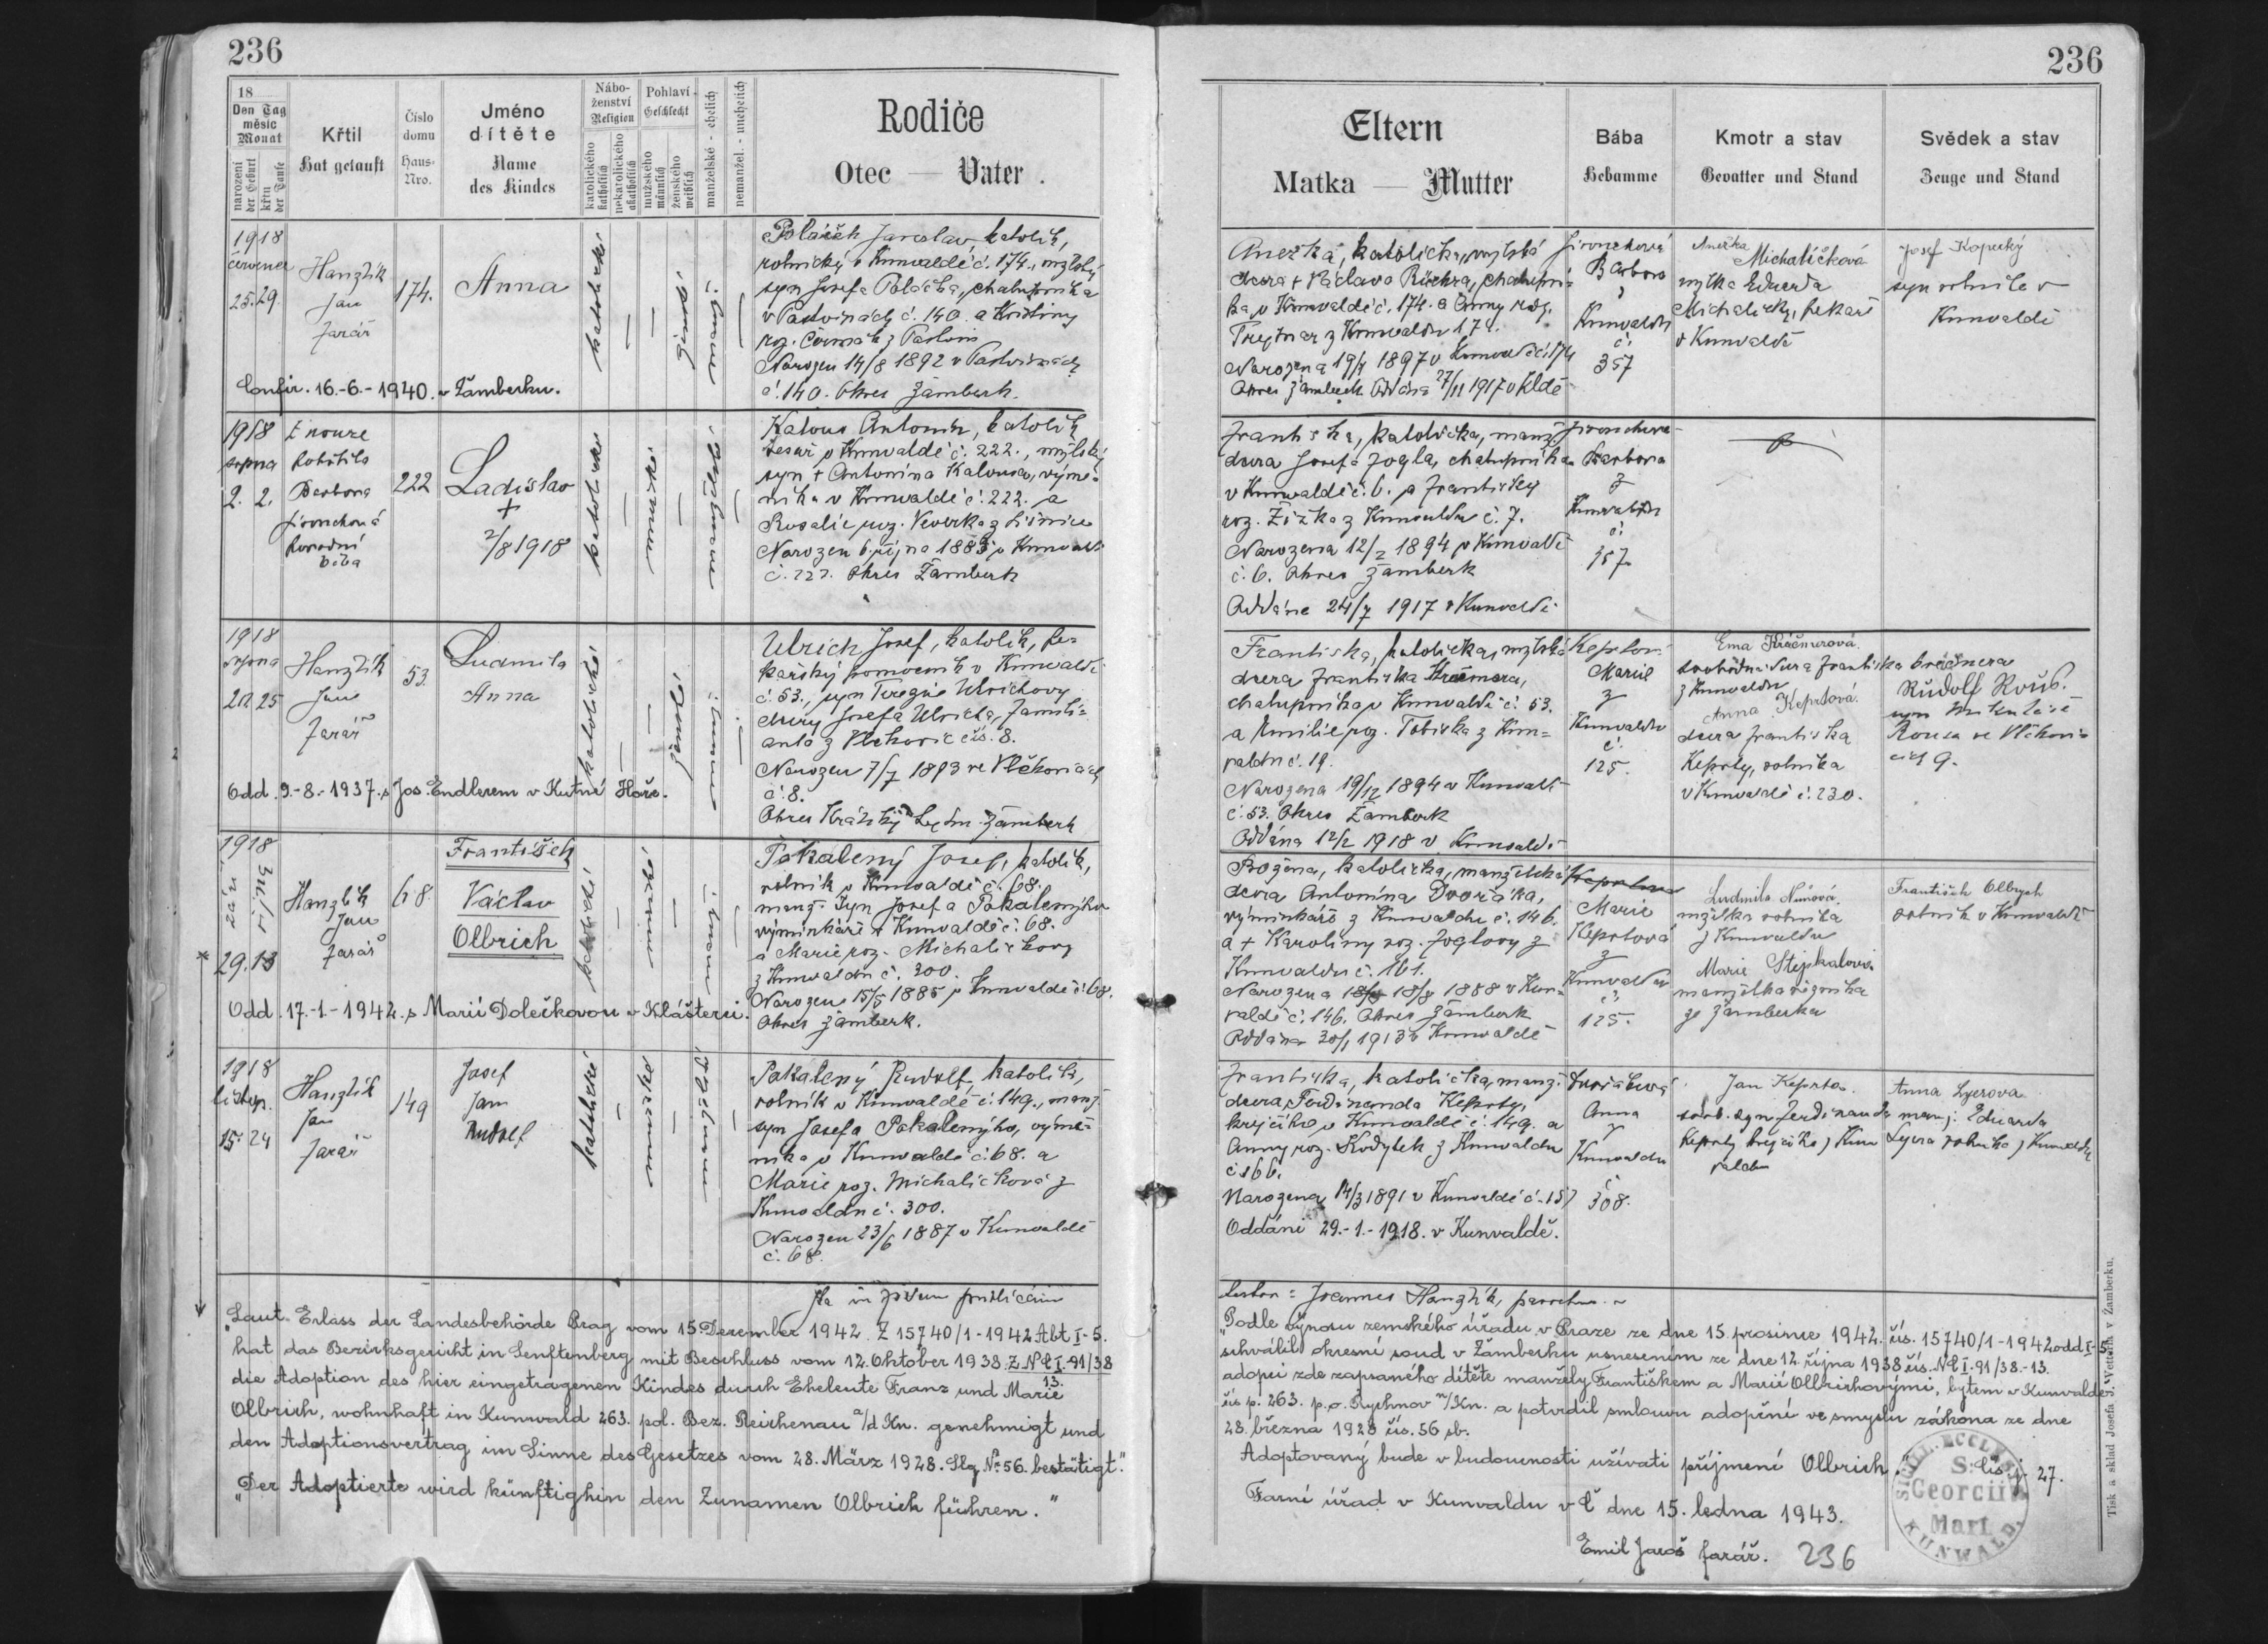 236
18
Den Tag
měsíc
Monat
narození
der Geburt
křtu
der Taufe
Křtil
Hat getauft
Číslo
domu
Haus-
Nro.
Jméno
dítěte
Name
des Kindes
Nábo-
ženství
Religion
katolického
katholisch
nekatolického
akatholisch
Pohlaví
Geschlecht
mužského
männlich
ženského
weiblich
manželské - ehelich
nemanžel. - unehelich
Rodiče
Otec — Vater
1918
července
25. 29.
Hanzlík
Jan
farář
174.
Anna
katolické
ženské
Poláček Jaroslav, katolík,
rolnický v Kunvaldě č. 174., mžlský
syn Josefa Poláčka, chalupníka
v Pastvinách č. 140. a Kristiny
roz. Čermák z Pastvin
Narozen 14/8 1892 v Pastvinách
č. 140. Okres Žamberk.
Confir. 16.-6.-1940. v Žamberku.
1918
srpna
2. 2.
Z nouze
pokřtila
Barbora
porodní
bába
222
Ladislav
+
2/8 1918
katolické
mužské
Kalous Antonín, katolík
tesař v Kunvaldě č. 222., mžlský
syn + Antonína Kalousa, výmě-
níka v Kunvaldě č. 222. a
Rosalie roz. Veverka z Lišnice
Narozen 6. října 1883 v Kunvaldě
č. 222. Okres Žamberk
1918
srpna
20. 25
Hanzlík
Jan
farář
53.
Ludmila
Anna
katolické
ženské
Ulrich Josef, katolík, pe-
kařský pomocník v Kunvaldě
č. 53., syn Terezie Ulrichovy
dcery Josefa Ulricha, famili-
anta z Vlčkovic čís. 8.
Narozen 7/7 1893 ve Vlčkovicích
č. 8.
Odd. 9.-8.-1937. s Jos. Endlerem v Kutné Hoře.
1918
září
29.
Hanzlík
Jan
farář
68.
František
Václav
Olbrich
katolické
mužské
Pokalený Josef, katolík,
rolník v Kunvaldě č. 68.
manž. syn Josefa Pokaleného
výminkáře v Kunvaldě č. 68.
a Marie roz. Michaličkovy
z Kunvaldu č. 300.
Narozen 15/5 1885 v Kunvaldě č. 68.
Okres Žamberk.
Odd. 17.-1.-1942. s Marií Dolečkovou v Klášterci.
1918
listop.
15. 24
Hanzlík
Jan
farář
149
Josef
Jan
Rudolf
katolické
mužské
Pokalený Rudolf, katolík,
rolník v Kunvaldě č. 149., manž
syn Josefa Pokaleného, výmě-
níka v Kunvaldě č. 68. a
Marie roz. Michaličková z
Kunvaldu č. 300.
Narozen 23/6 1887 v Kunvaldě
č. 68.
„Laut Erlass der Landesbehörde Prag vom 15. Dezember 1942. Z 15740/1-1942 Abt I-5.
hat das Bezirksgericht in Senftenberg mit Beschluss vom 12. Oktober 1938. Z Nc I. 91/38
13.
die Adoption des hier eingetragenen Kindes durch Eheleute Franz und Marie
Olbrich, wohnhaft in Kunwald 263. pol. Bez. Reichenau a/d Kn. genehmigt und
den Adoptionsvertrag im Sinne des Gesetzes vom 28. März 1928. Slg. No 56. bestätigt."
„Der Adoptierte wird künftighin den Zunamen Olbrich führen."
236
Eltern
Matka — Mutter
Bába
Hebamme
Kmotr a stav
Gevatter und Stand
Svědek a stav
Zeuge und Stand
Anežka, katolička, mžlská
dcera + Václava chalupní-
ka v Kunvaldě č. 174. a Anny roz.
Narozena 1897 v Kunvaldě č. 174
Okres Žamberk 27/11 1917
Barbora
z
Kunvaldu
č.
357
Anežka
Michaličková
mžlka Eduarda
Michaličky, pekaře
v Kunvaldě
Josef Kopecký
syn rolníka v
Kunvaldě
Františka, katolička, manž.
dcera Josefa Jogla, chalupníka
v Kunvaldě č. 6. a Františky
roz. Žižka z Kunvaldu č. 7.
Narozena 12/2 1894 v Kunvaldě
č. 6. Okres Žamberk
Oddáni 24/7 1917 v Kunvaldě
Barbora
z
Kunvaldu
č.
357.
Františka, katolička, mžlská
dcera Františka
chalupníka v Kunvaldě č. 53.
a Emilie roz. z Kun-
valdu č. 19.
Narozena 19/12 1894 v Kunvaldě
č. 53. Okres Žamberk
Oddána 12/2 1918 v Kunvaldě
Marie
z
Kunvaldu
č.
125.
Ema
svobodná dcera Františka
z Kunvaldu
Anna Keprtová
dcera Františka
Keprty, rolníka
v Kunvaldě č. 230.
Rudolf Rous.
syn
Rousa ve Vlčkovi-
9.
Božena, katolička, manželská
dcera Antonína Dvořáka,
výminkáře z Kunvaldu č. 146.
a + Karoliny roz. Joglovy z
Kunvaldu č. 161.
Narozena 18/8 1888 v Kun-
valdě č. 146. Okres Žamberk
Oddána 1913 v Kunvaldě
Marie
Keprtová
z
Kunvaldu
č.
125.
Ludmila
mžlka rolníka
z Kunvaldu
Marie
manželka řezníka
ze Žamberka
František Olbrych
rolník v Kunvaldě
Františka, katolička, manž.
dcera Ferdinanda Keprty,
krejčího v Kunvaldě č. 149. a
Anny roz. Kodytek z Kunvaldu
č. 166.
Narozena 14/3 1891 v Kunvaldě č. 157
Oddáni 29.-1.-1918. v Kunvaldě.
Anna
z
Kunvaldu
č.
308.
Jan Keprta
svob. syn Ferdinanda
Keprty krejčího z Kun
valdu
Anna Lyerova
manž. Eduarda
Lyera rolníka z Kunvaldu
Joannes Hanzlík, parochus
„Podle výnosu zemského úřadu v Praze ze dne 15. prosince 1942. čís. 15740/1-1942 odd I-5
schválil okresní soud v Žamberku usnesením ze dne 12. října 1938 čís. Nc I. 91/38.-13.
adopci zde zapsaného dítěte manžely Františkem a Marií Olbrichovými, bytem v Kunvaldě
čís p. 263. p.o. Rychnov n/Kn. a potvrdil smlouvu adopční ve smyslu zákona ze dne
28. března 1928 čís. 56 sb.
Adoptovaný bude v budoucnosti užívati příjmení Olbrich." Čís. j. 27.
Farní úřad v Kunvaldu v Č dne 15. ledna 1943.
Emil Jaroš farář. 236
SIGILL. ECCLES.
S.
Georcii
Mart.
KUNWALD.
Tisk a sklad Josefa J. Wettera v Žamberku.